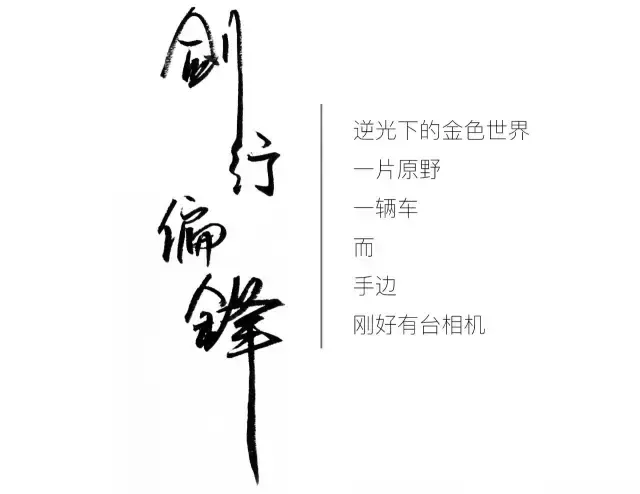 剑行偏锋
逆光下的金色世界
一片原野
一辆车
而
手边
刚好有台相机